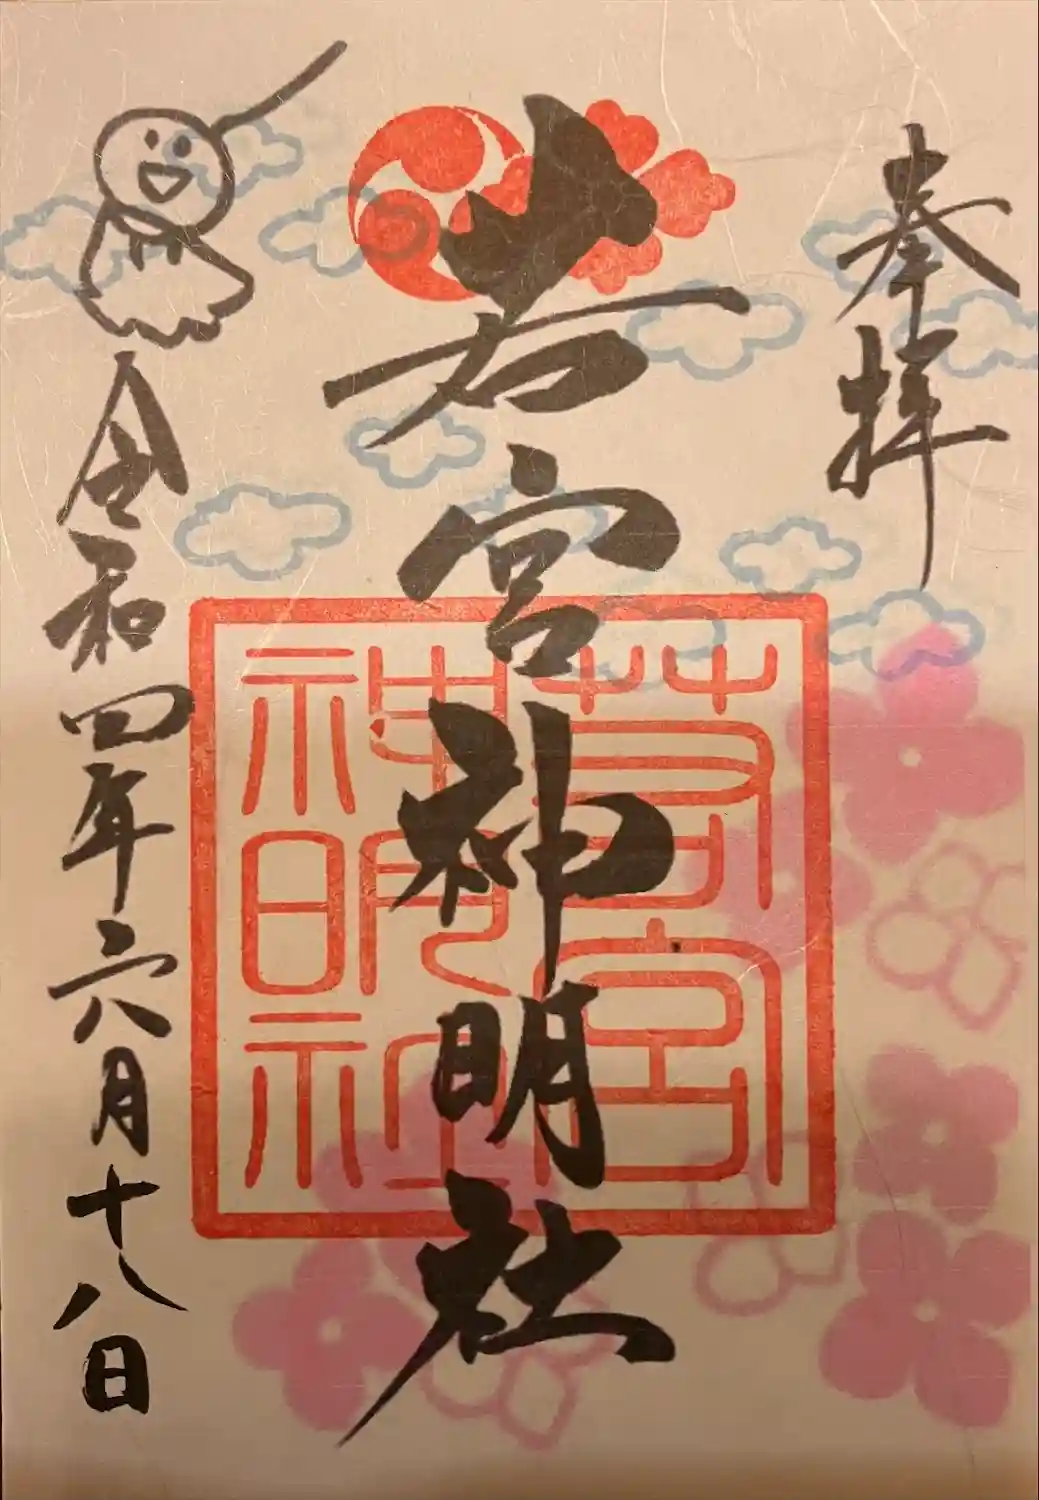 奉拝
若宮神明社
若宮
神明
社
令和四年六月十八日